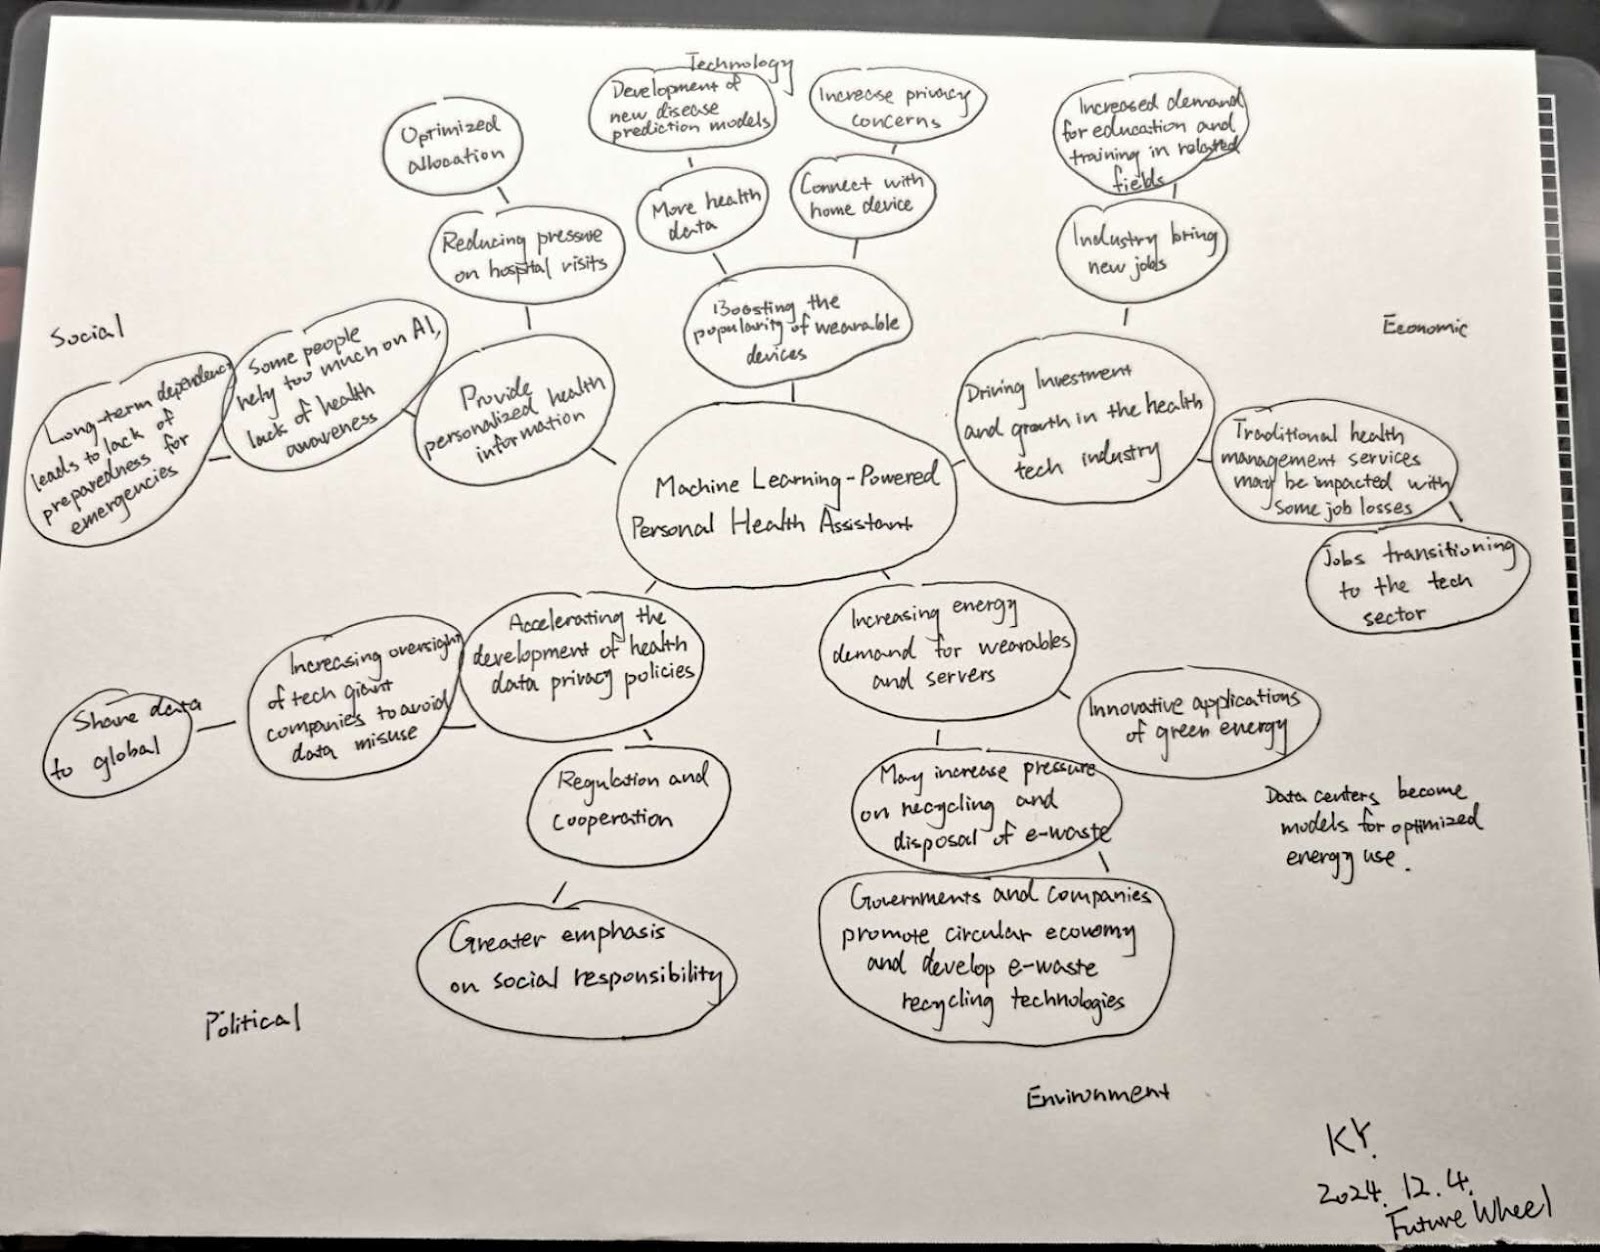 Technology
Development of
new disease
prediction models
Increase privacy
concerns
Increased demand
for education and
training in related
fields
Optimized
allocation
More health
data
Connect with
home device
Reducing pressure
on hospital visits
Industry bring
new jobs
Boosting the
popularity of wearable
devices
Social
Economic
Long-term dependency
leads to lack of
preparedness for
emergencies
Some people
rely too much on AI,
lack of health
awareness
Provide
personalized health
information
Driving Investment
and growth in the health
tech industry
Traditional health
management services
may be impacted with
some job losses
Jobs transitioning
to the tech
sector
Machine Learning-Powered
Personal Health Assistant
Share data
to global
Increasing oversight
of tech giant
companies to avoid
data misuse
Accelerating the
development of health
data privacy policies
Increasing energy
demand for wearables
and servers
Innovative applications
of green energy
Regulation and
cooperation
May increase pressure
on recycling and
disposal of e-waste
Data centers become
models for optimized
energy use.
Greater emphasis
on social responsibility
Governments and companies
promote circular economy
and develop e-waste
recycling technologies
Political
Environment
KY.
2024. 12. 4.
Future Wheel